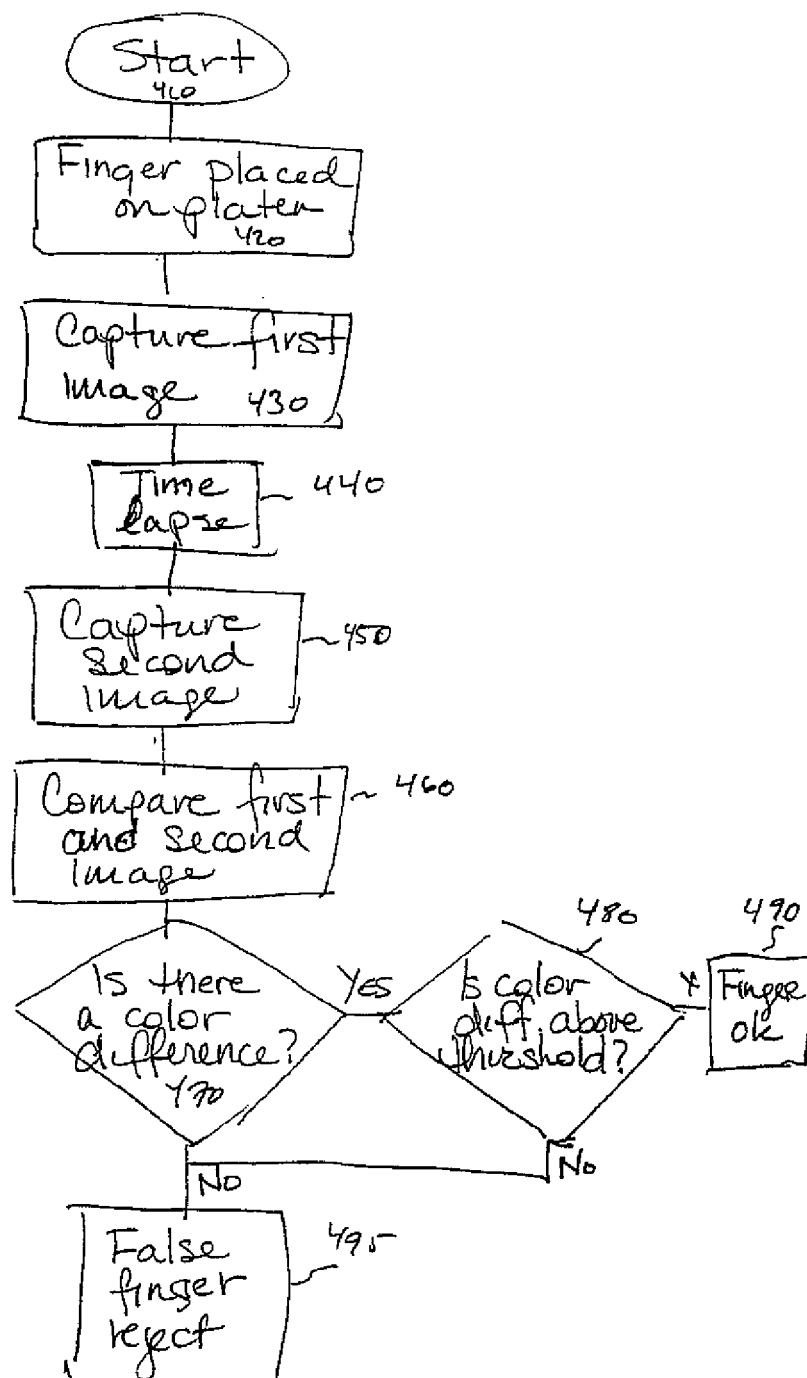 Start
410
Finger placed
on platen
420
Capture first
Image 430
Time
lapse
440
Capture
second
Image
450
Compare first
and second
Image
460
Is there
a color
difference?
470
YES
Is color
diff. above
threshold?
480
Y
Finger
ok
490
No
No
False
finger
reject
495